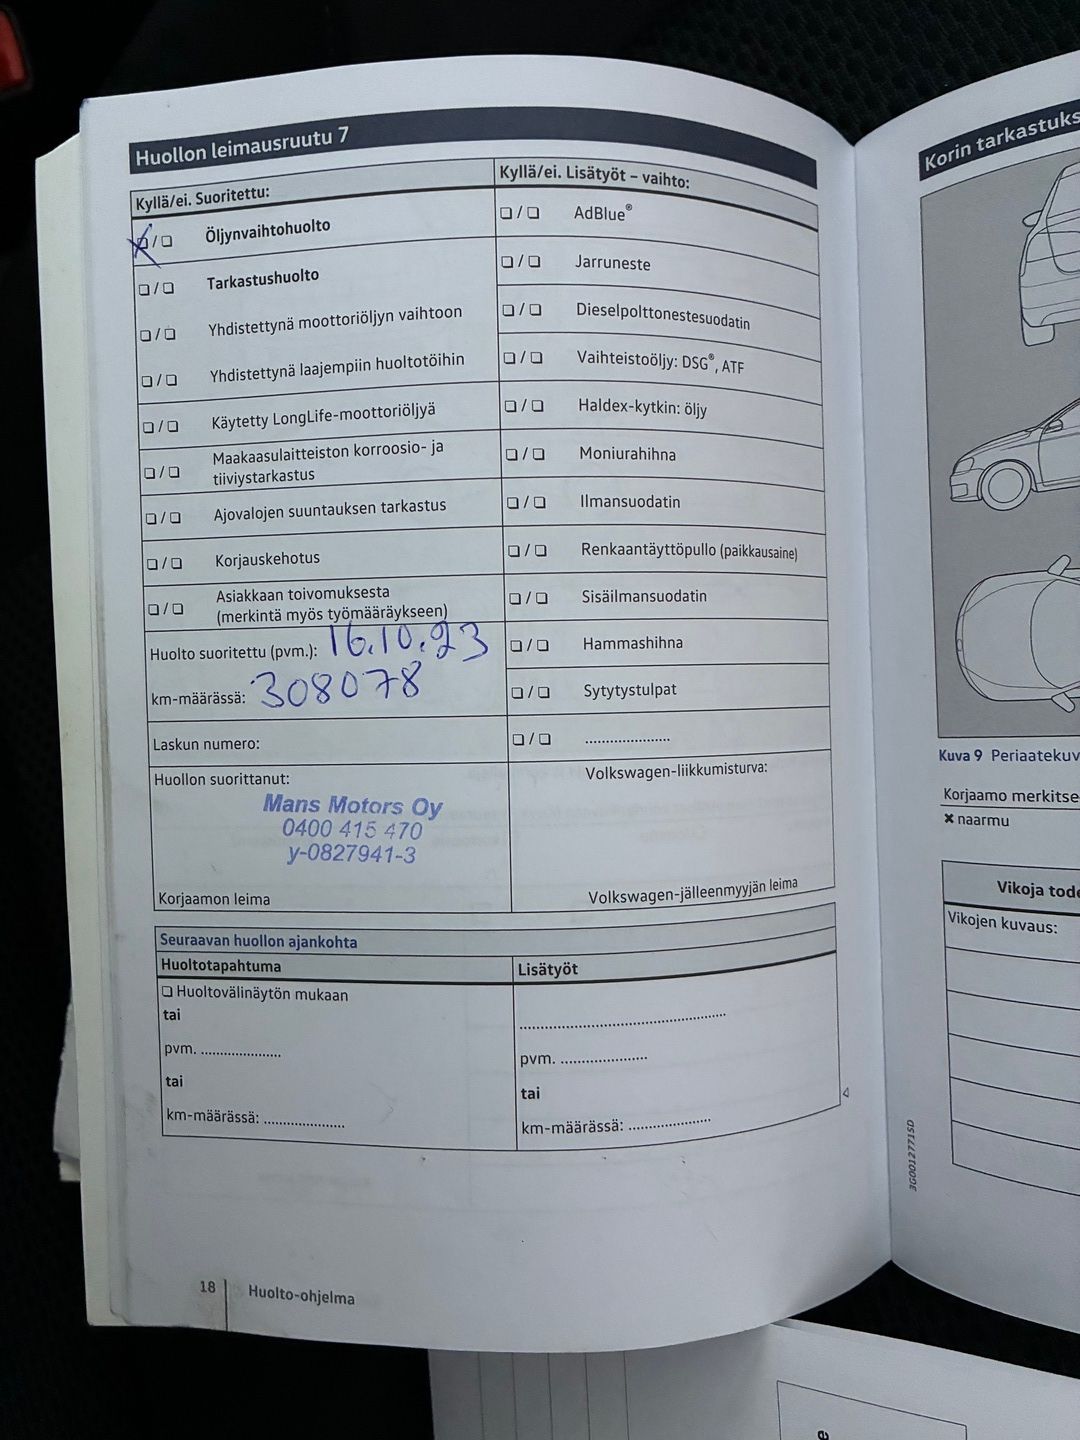 Huollon leimausruutu 7
Kyllä/ei. Suoritettu:
❏/❏ Öljynvaihtohuolto
❏/❏ Tarkastushuolto
❏/❏ Yhdistettynä moottoriöljyn vaihtoon
❏/❏ Yhdistettynä laajempiin huoltotöihin
❏/❏ Käytetty LongLife-moottoriöljyä
❏/❏ Maakaasulaitteiston korroosio- ja
tiiviystarkastus
❏/❏ Ajovalojen suuntauksen tarkastus
❏/❏ Korjauskehotus
❏/❏ Asiakkaan toivomuksesta
(merkintä myös työmääräykseen)
Huolto suoritettu (pvm.): 16.10.23
km-määrässä: 308078
Laskun numero:
Huollon suorittanut:
Mans Motors Oy
0400 415 470
y-0827941-3
Korjaamon leima
Kyllä/ei. Lisätyöt – vaihto:
❏/❏ AdBlue®
❏/❏ Jarruneste
❏/❏ Dieselpolttonestesuodatin
❏/❏ Vaihteistoöljy: DSG®, ATF
❏/❏ Haldex-kytkin: öljy
❏/❏ Moniurahihna
❏/❏ Ilmansuodatin
❏/❏ Renkaantäyttöpullo (paikkausaine)
❏/❏ Sisäilmansuodatin
❏/❏ Hammashihna
❏/❏ Sytytystulpat
❏/❏ ....................
Volkswagen-liikkumisturva:
Volkswagen-jälleenmyyjän leima
Seuraavan huollon ajankohta
Huoltotapahtuma
❏ Huoltovälinäytön mukaan
tai
pvm. ...................
tai
km-määrässä: ...................
Lisätyöt
.................................................
pvm. ...................
tai
km-määrässä: ...................
18 Huolto-ohjelma
Korin tarkastuks
Kuva 9 Periaatekuv
Korjaamo merkitse
✖ naarmu
Vikoja tode
Vikojen kuvaus:
3G0012771SD